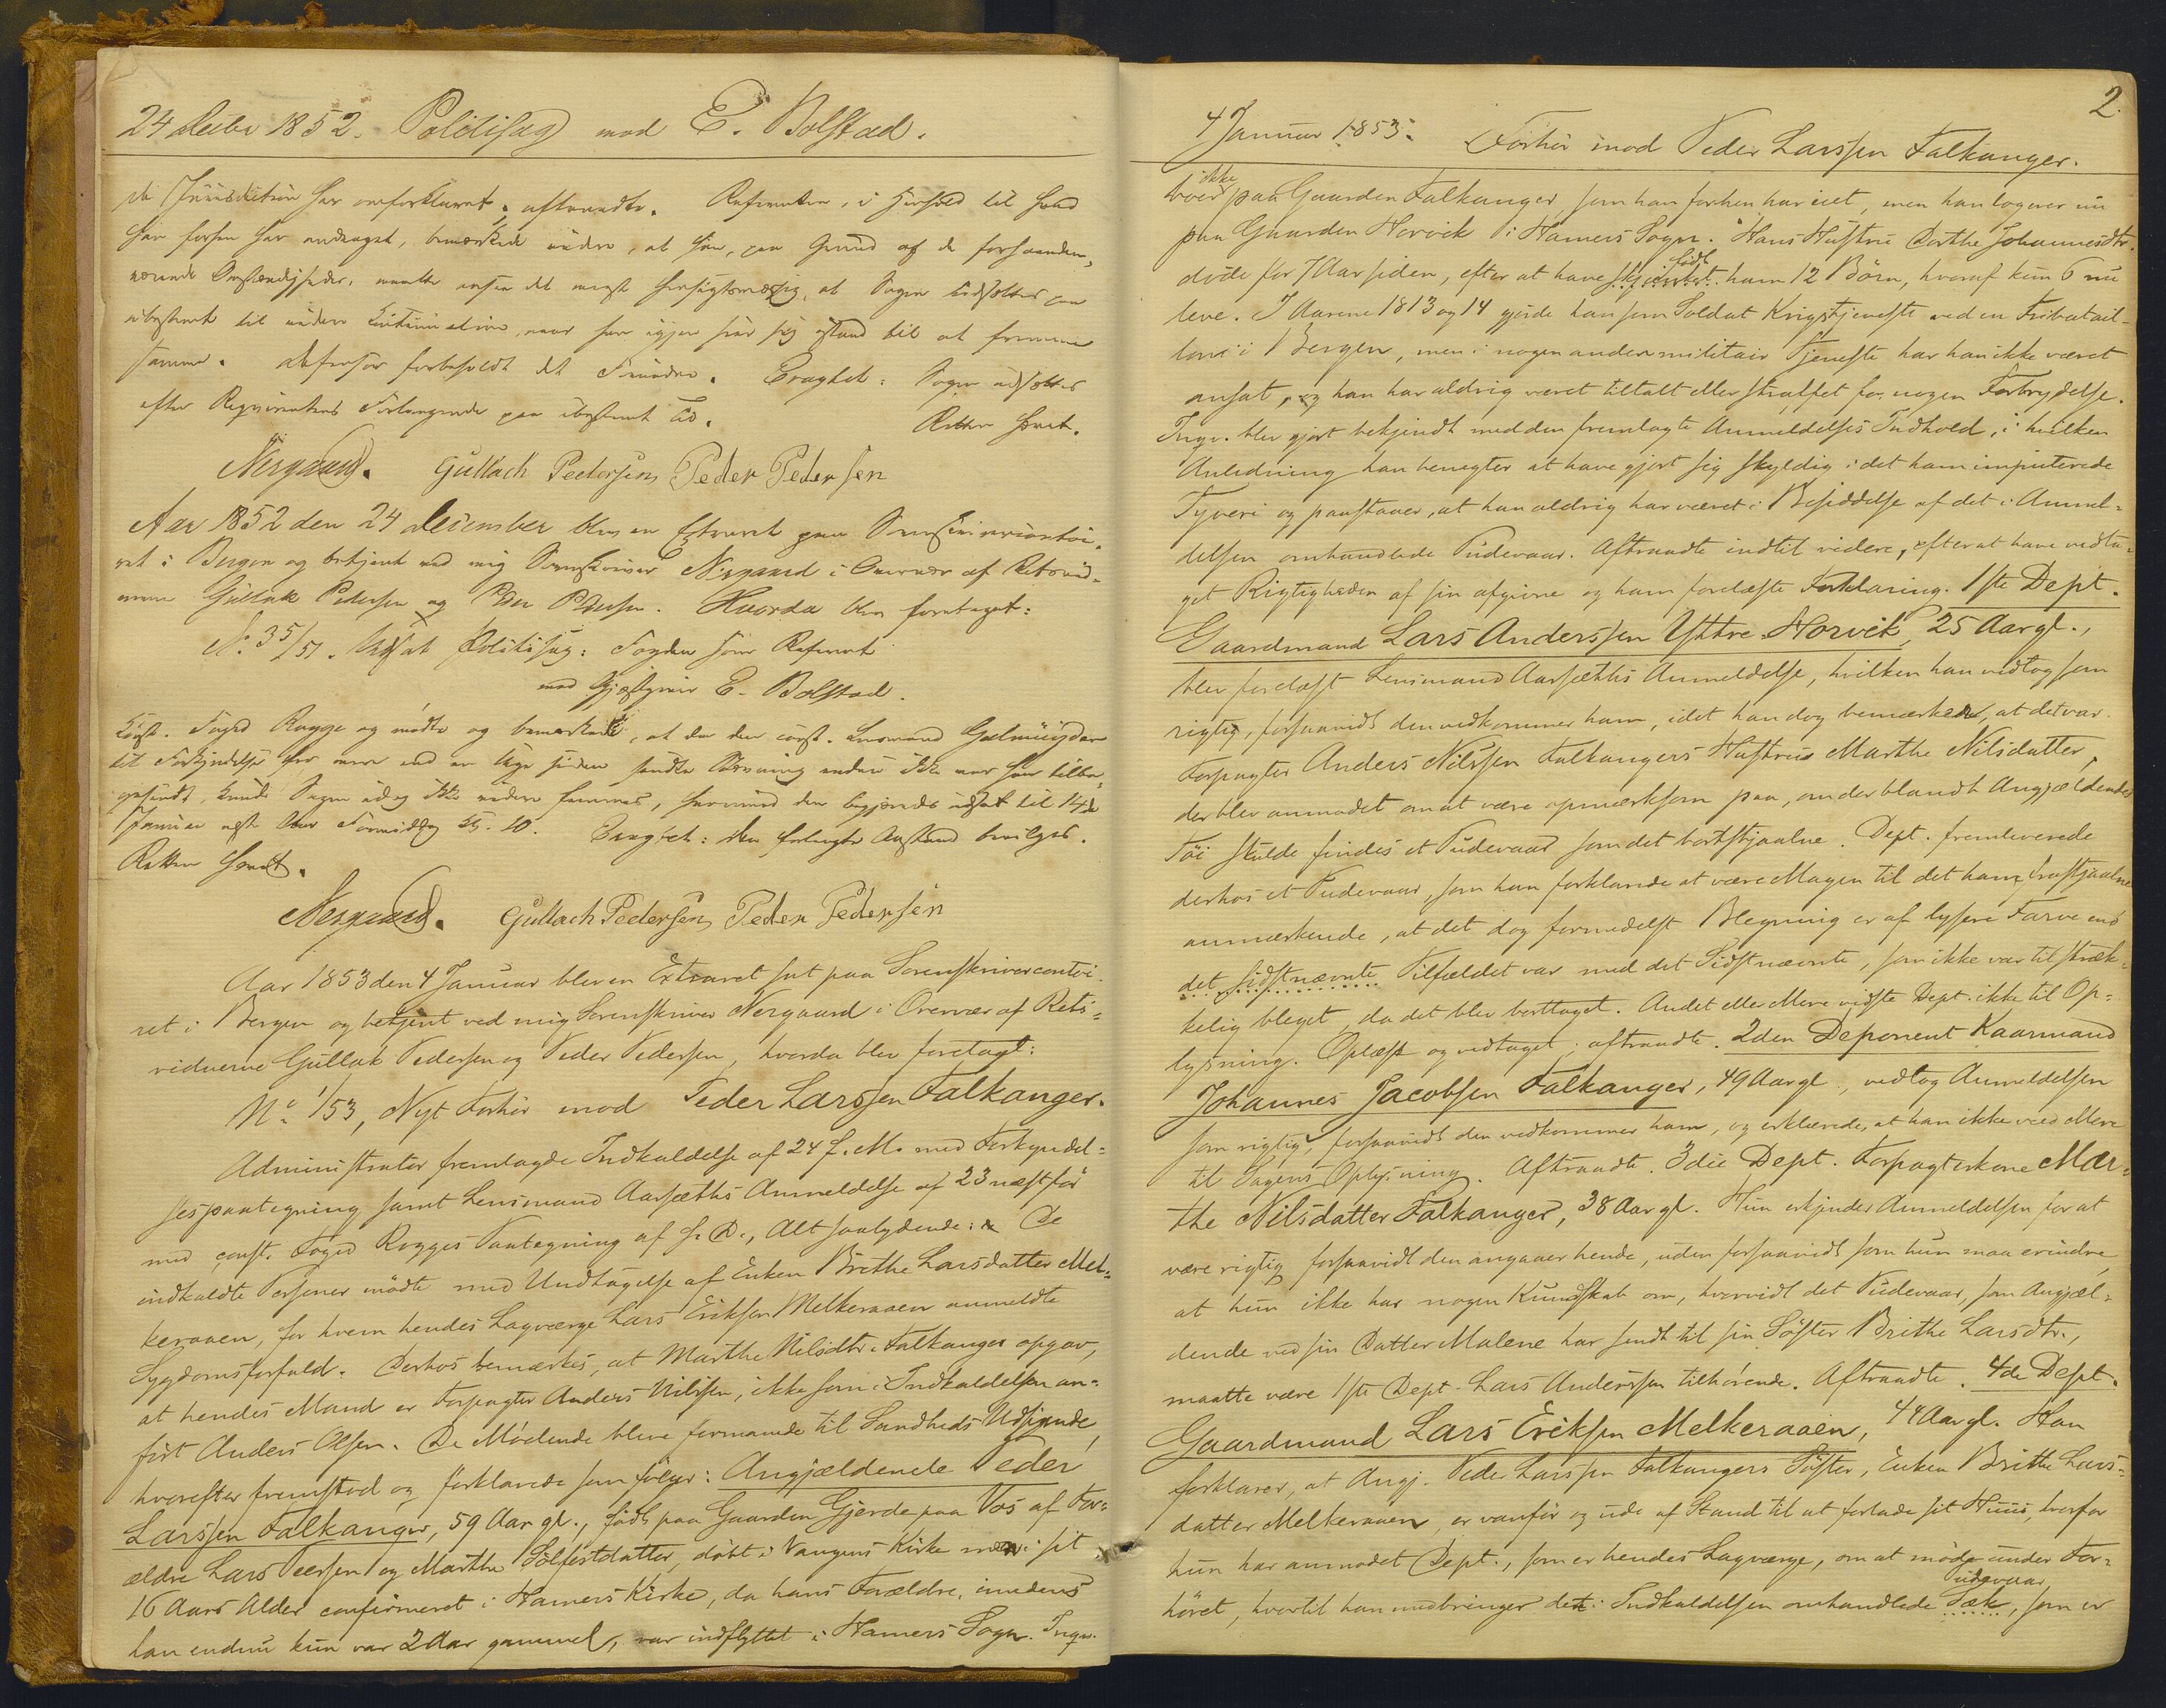 24 Decbr 1852. Politisag mod E. Bolstad.
de Jurisdiction har omforklaret, aftraadte. Referenten, i Henhold til hvad
han forhen har andraget, bemærkede videre, at han, paa Grund af de forhaanden-
værende Omstændigheder, maatte ansee det mest hensigtsmæssig, at Sagen udsættes paa
ubestemt til videre Continuation, naar han igjen seer sig istand til at fremme
samme. Defensor forbeholdt det Fornødne. Eragtet: Sagen udsættes
efter Reqvirentens Forlangende paa ubestemt Tid. Retten hævet.
Nergaard. Gullach Pedersen Peder Pedersen
Aar 1852 den 24 December blev en Extraret paa Sorenskrivercontoi-
ret i Bergen og betjent ved mig Sorenskriver Nergaard i Overvær af Retsvid-
nerne Gullak Pedersen og Peder Pedersen. Hvorda blev foretaget:
No. 35/51. Udsat Politisag: Fogden som Referent
mod Gjæstgiver E. Bolstad.
Const. Foged Rogge og mødte og bemærkede, at da den const. Lensmand
til Forkyndelse for mere end en Uge siden sendte Stævning endnu ikke var ham tilba-
gesendt, kunde Sagen idag ikke videre fremmes, hvorimod den begjæredes udsat til 14de
Januar næst Aar Formiddag Kl. 10. Eragtet: Den forlangte Anstand bevilges.
Retten hævet.
Nergaard. Gullach Pedersen Peder Pedersen
Aar 1853 den 4 Januar blev en Extraret sat paa Sorenskrivercontoi-
ret i Bergen og betjent ved mig Sorenskriver Nergaard i Overvær af Rets-
vidnerne Gullak Pedersen og Peder Pedersen, hvorda blev foretaget:
No 1/53, Nyt Forhør mod Peder Larssen Falkanger.
Administrator fremlagde Indkaldelse af 24 f. M. med Forkyndel-
sespaategning samt Lensmand Aarsæths Anmeldelse af 23 næstfør
med const. Foged Rogges Paategning af s. D., Alt saalydende: De
indkaldte Personer mødte med Undtagelse af Enken Brithe Larsdatter Mel-
keraaen, for hvem hendes Lagværge Lars Eriksen Melkeraaen anmeldte
Sygdomsforfald. Derhos bemærkes, at Marthe Nilsdtr. Falkanger opgav,
at hendes Mand er Forpagter Anders Nilssen, ikke som i Indkaldelsen an-
ført Anders Olsen. De Mødende bleve formanede til Sandheds Udsigende,
hvorefter fremstod og forklarede som følger: Angjældende Peder
Larssen Falkanger, 59 Aar gl., født paa Gaarden Gjerde paa Vos af For-
ældre Lars Peersen og Marthe Sölfestdatter, døbt i Vangens Kirke men i sit
16 Aars Alder confirmeret i Hamers Kirke, da hans Forældre, imedens
han endnu kun var 2 Aar gammel, var indflyttet i Hamers Sogn. Inqv.
2.
4 Januar 1853. Forhør mod Peder Larssen Falkanger.
boer ikke paa Gaarden Falkanger som han forhen har eiet, men han logerer nu
paa Gaarden Horvik i Hamers Sogn. Hans Hustru Dorthe Johannesdtr.
døde for 7 Aar siden, efter at have skjænket født ham 12 Børn, hvoraf kun 6 nu
leve. I Aarene 1813 og 14 gjorde han som Soldat Krigstjeneste ved en Fribatail-
lons i Bergen, men i nogen anden militair Tjeneste har han ikke været
ansat, og han har aldrig været tiltalt eller straffet for nogen Forbrydelse.
Inqv. blev gjort bekjendt med den fremlagte Anmeldelses Indhold, i hvilken
Anledning han benegter at have gjort sig skyldig i det ham imputerede
Tyveri og paastaaer, at han aldrig har været i Besiddelse af det i Anmel-
delsen omhandlede Pudevaar. Aftraadte indtil videre, efter at have vedta-
get Rigtigheden af sin afgivne og ham forelæste Forklaring. 1ste Dept.
Gaardmand Lars Anderssen Yttre Horvik, 25 Aar gl.,
blev forelæst Lensmand Aarsæths Anmeldelse, hvilken han vedtog som
rigtig, forsaavidt den vedkommer ham, idet han dog bemærkede, at det var
Forpagter Anders Nilssen Falkangers Hustrue Marthe Nilsdatter,
der blev anmodet om at være opmærksom paa, om der blandt Angjældendes
Töi skulde findes et Pudevaar som det bortstjaalne. Dept. fremleverede
derhos et Pudevaar, som han forklarede at være Magen til det ham frastjaalne
anmærkende, at det dog formedelst Blegning er af lysere Farve end
det sidstnævnte Tilfældet var med det Sidstnævnte, som ikke var tilstræk-
kelig bleget, da det blev borttaget. Andet eller Mere vidste Dept. ikke til Op-
lysning. Oplæst og vedtaget; aftraadte. 2den Deponent Kaarmand
Johannes Jacobsen Falkanger, 49 Aar gl., vedtog Anmeldelsen
som rigtig, forsaavidt den vedkommer ham, og erklærede, at han ikke veed Mere
til Sagens Oplysning. Aftraadte. 3die Dept. Forpagterkone Mar-
the Nilsdatter Falkanger, 38 Aar gl. Hun erkjender Anmeldelsen for at
være rigtig forsaavidt den angaaer hende, uden forsaavidt som hun maa erindre,
at hun ikke har nogen Kundskab om, hvorvidt det Pudevaar, som Angjæl-
dende ved sin Datter Malene har sendt til sin Søster Brithe Larsdtr.,
maatte være 1ste Dept. Lars Anderssen tilhørende. Aftraadte. 4de Dept.
Gaardmand Lars Eriksen Melkeraaen, 44 Aar gl. Han
forklarer, at Angj. Peder Larssen Falkangers Søster, Enken Brithe Lars-
datter Melkeraaen, er vanför og ude af Stand til at forlade sit Huus, hvorfor
hun har anmodet Dept., som er hendes Lagværge, om at møde under For-
høret, hvortil han medbringer det i Indkaldelsen omhandlede Sæk Pudevaar, som er